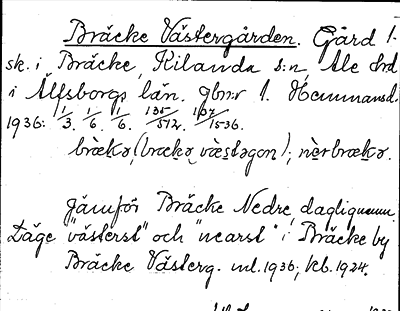 Bräcke Västergården. Gård 1.
sk. i Bräcke, Kilanda s:n, Ale hrd
i Älfsborgs län. Gbnr 1. Hemmansd.
1936: 1/3. 1/6. 1/6. 135/512. 107/1536.
brækə, (brækə væstəgon); nərbrækə.
Jämför Bräcke Nedre, daglignamn.
Läge "västerst" och "nearst" i Bräcke by
Bräcke Västerg. ml. 1936; kb. 1924.